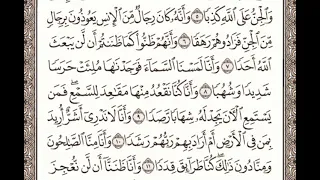 وَٱلْجِنُّ عَلَى ٱللَّهِ كَذِبًا ٥ وَأَنَّهُۥ كَانَ رِجَالٌ مِّنَ ٱلْإِنسِ يَعُوذُونَ بِرِجَالٍ
مِّنَ ٱلْجِنِّ فَزَادُوهُمْ رَهَقًا ٦ وَأَنَّهُمْ ظَنُّوا۟ كَمَا ظَنَنتُمْ أَن لَّن يَبْعَثَ
ٱللَّهُ أَحَدًا ٧ وَأَنَّا لَمَسْنَا ٱلسَّمَآءَ فَوَجَدْنَٰهَا مُلِئَتْ حَرَسًا
شَدِيدًا وَشُهُبًا ٨ وَأَنَّا كُنَّا نَقْعُدُ مِنْهَا مَقَٰعِدَ لِلسَّمْعِ ۖ فَمَن
يَسْتَمِعِ ٱلْـَٔانَ يَجِدْ لَهُۥ شِهَابًا رَّصَدًا ٩ وَأَنَّا لَا نَدْرِىٓ أَشَرٌّ أُرِيدَ
بِمَن فِى ٱلْأَرْضِ أَمْ أَرَادَ بِهِمْ رَبُّهُمْ رَشَدًا ١٠ وَأَنَّا مِنَّا ٱلصَّٰلِحُونَ
وَمِنَّا دُونَ ذَٰلِكَ ۖ كُنَّا طَرَآئِقَ قِدَدًا ١١ وَأَنَّا ظَنَنَّآ أَن لَّن نُّعْجِزَ